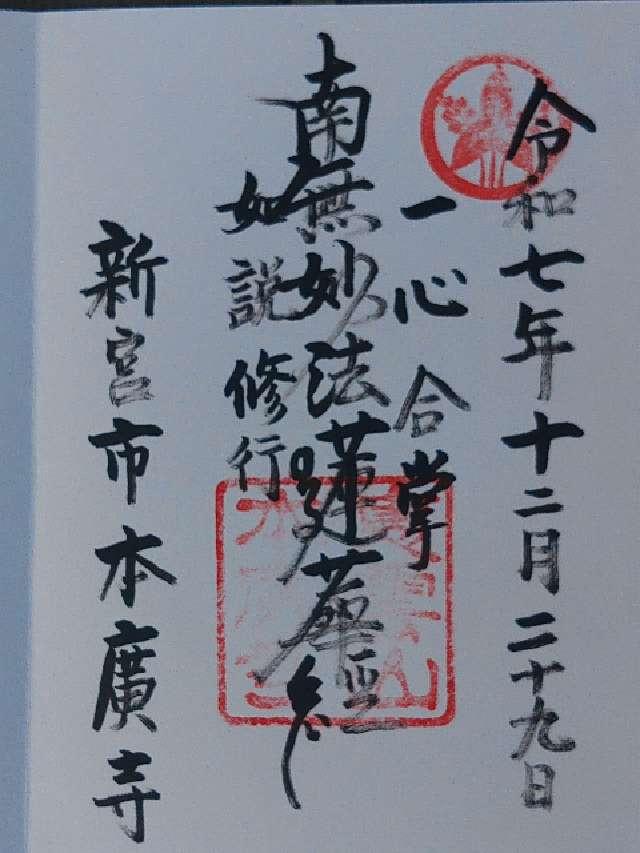 令和七年十二月二十九日
一心合掌
南無妙法蓮華經
如説修行
新宮市本廣寺